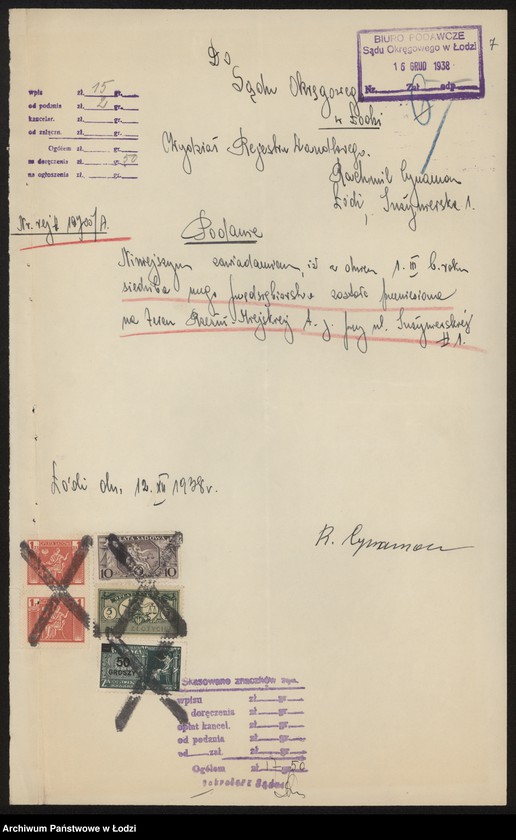 7
BIURO PODAWCZE
Sądu Okręgowego w Łodzi
15 GRUD 1938
Nr. Zał. odp.
wpis zł. 15 gr.
od podania zł. 2 gr.
kancelar. zł. gr.
od załączn. zł. gr.
Ogółem zł. gr.
za doręczenia zł. gr. 50
na ogłoszenia zł. gr.
Do
Sądu Okręgowego
w Łodzi
Wydział Rejestru Handlowego.
Rachmil Cynamon
Łódź, Inżynierska 1.
Nr. rej. 18700/A.
Podanie
Niniejszym zawiadamiam, iż w dniu 1. III b. roku
siedziba mego przedsiębiorstwa została przeniesiona
na teren Rzeźni Miejskiej t. j. przy ul. Inżynierskiej
# 1.
Łódź dn. 12. XII 1938 r.
R. Cynamon
OPŁATA SĄDOWA
10 10
1 1
50
GROSZY
Skasowano znaczków
wpisu zł. gr.
doręczenia zł. gr.
opłat kancel. zł. gr.
od podania zł. gr.
od zał. zł. gr.
Ogółem zł. 17 gr. 50
Archiwum Państwowe w Łodzi